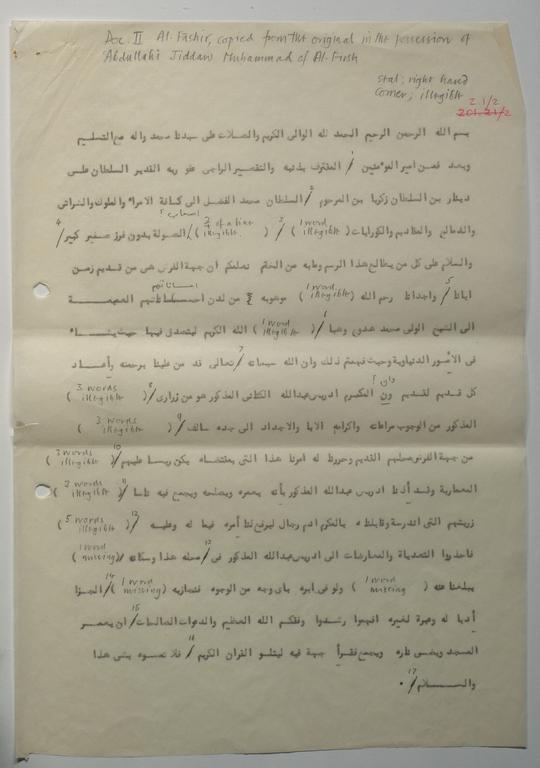 Doc. II Al-Fashir, copied from the original in the possession of
Abdullahi Jiddaw Muhammad of Al-Firsh
seal: right hand
corner; illegible
2.1/2
201.21/2
بسم الله الرحمن الرحيم الحمد لله الوالى الكريم والصلات على سيدنا محمد واله مع التسليم
وبعد فمن امير المؤمنين /1 المعترف بذنبه والتقصير الراجى عفو ربه القدير السلطان على
دينار بن السلطان زكريا بن المرحوم /2 السلطان محمد الفضل الى كافة الامراء والملوك والشراتى
والدمالج والمقاديم والكورايات (1 word illegible) /3 (2/3 of a line illegible) / اصحاب؟ الصولة بدون فرز صغير كبير /4
والسلام على كل من يطالع هذا الرسم ومابه من الختم نعلمكم ان جهة الفرش هى من قديم زمن
ابائنا /5 واجدادنا رحم الله (1 word illegible) موهوبه من لدن العميمة
الى الشيخ الولى محمد عدوى وهبا /6 (1 word illegible) الله الكريم ليتصدق فيها حيث يشاء
فى الأمور الدنياوية وحيث فهمتم ذلك وان الله سبحانه /7 تعالى قد من علينا برحمته وأعاد
كل قديم لقديم ون وان؟ المكرم ادريس عبدالله الكنانى المذكور هو من زرارى /8 (3 words illegible)
المذكور من الوجوب مراعاته واكرامه الابا والاجداد الى جده سالف /9 (3 words illegible)
من جهة الفرش عملهم القديم وحررنا له امرنا هذا التى بمقتضاه يكن ريسا عليهم /10 (3 words illegible)
المعمارية وقد أذنا ادريس عبدالله المذكور بأنه يعمره ويصلحه ويجمع فيه ناسا /11 (2 words illegible)
زريتهم التى اندرسة وقابلنا ه يالمكرم ادم رجال ليرفع لنا أمره فيما له وعليه /12 (5 words illegible)
فاحذروا التعديات والمعارضات الى ادريس عبدالله المذكور فى /13 محله هذا وسكانه / (1 word missing)
يبلغنا عنه (1 word missing) ولو فى ابره بأى وجه من الوجوه فنجازيه (1 word missing) /14 الجزا
أدبا له وعبرة لغيره افهموا رشدوا وفقكم الله العظيم والدعوات الصالحات /15 ان يعمر
المسجد ويضى ناره ويجمع فقرأ جهة فيه ليتلو القران الكريم /16 فلا تمسوه بشى هذا
والسلام /17 .